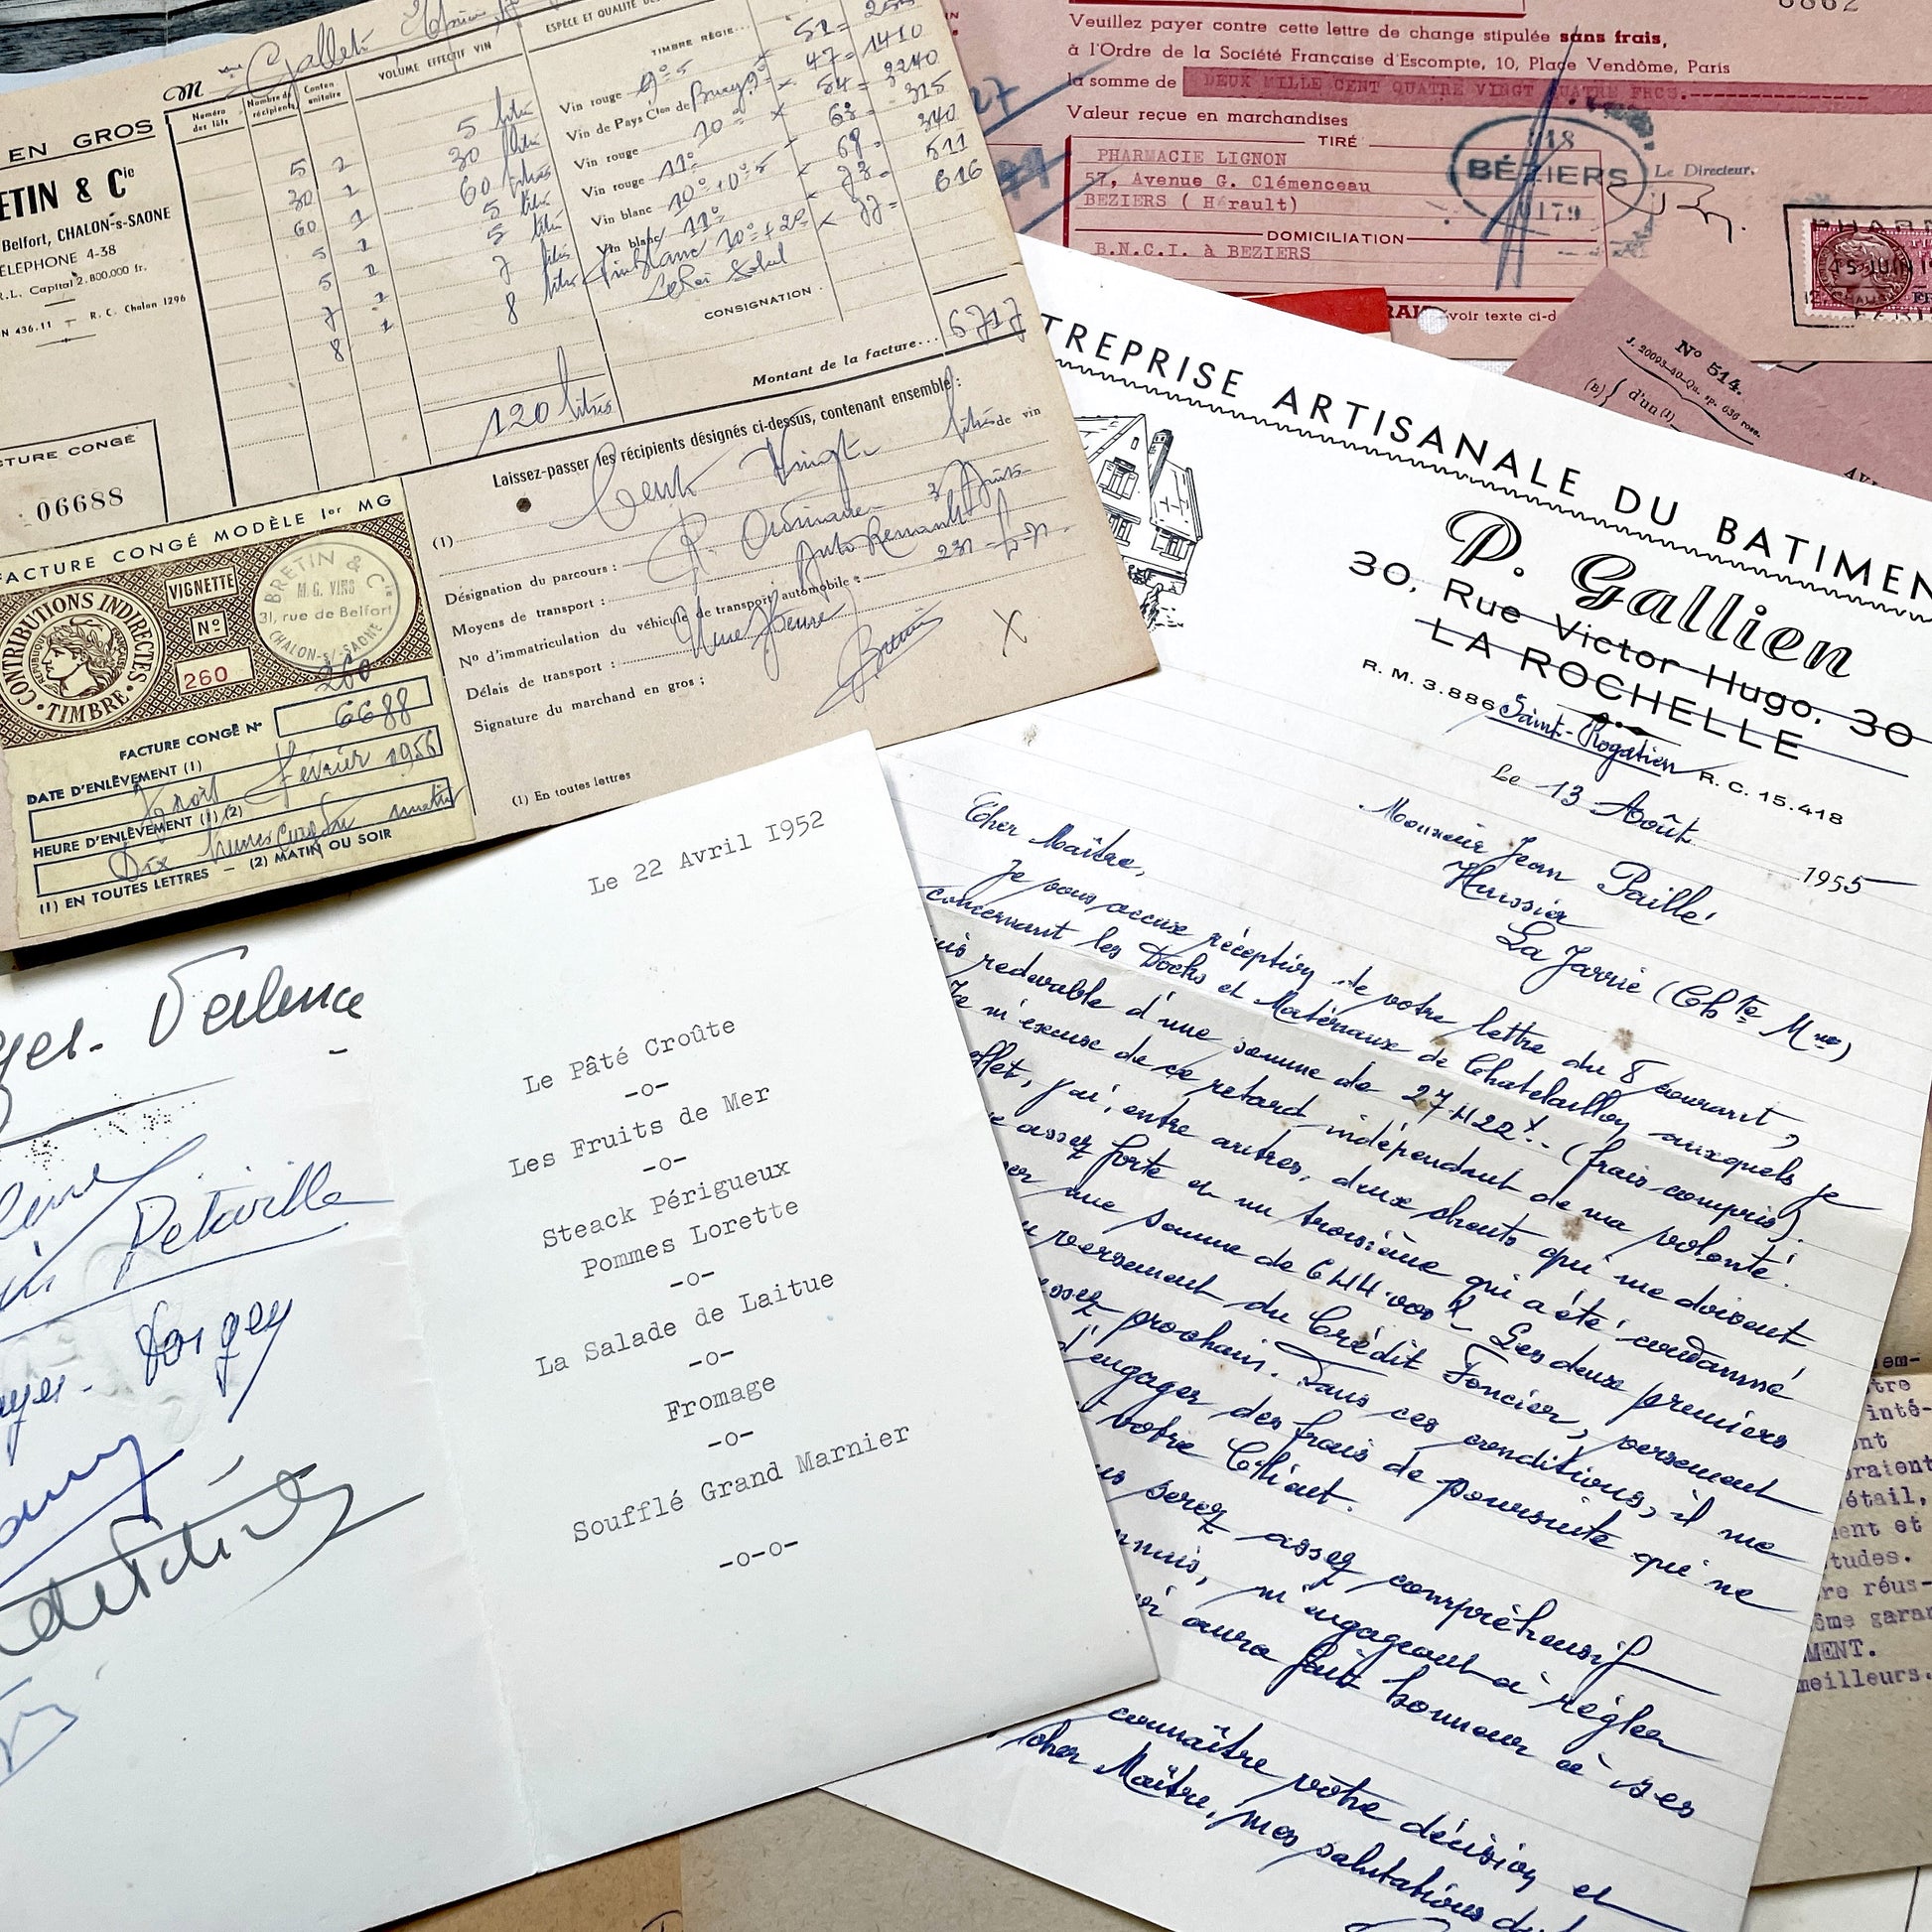 Mme Gallet
EN GROS
ETIN & Cie
Belfort, CHALON-s-SAONE
ÉLÉPHONE 4-38
R.L. Capital 2.800.000 fr.
N 436.11 — R. C. Chalon 1296
Numéro des fûts
Nombre de récipients
Conten unitaire
VOLUME EFFECTIF VIN
ESPÈCE ET QUALITÉ DE
TIMBRE RÉGIE...
5 1 5 litres Vin rouge 9°5 51=
30 1 30 litres Vin de Pays 47= 1410
60 1 60 litres Vin rouge 10° × 54= 3240
5 1 5 litres Vin rouge 11° 315
5 1 5 litres Vin blanc 10° 340
7 1 7 litres Vin blanc 11° × 73= 511
8 1 8 litres Vin blanc × 77= 616
CONSIGNATION
Montant de la facture... 6717
120 litres
TURE CONGÉ
06688
Laissez-passer les récipients désignés ci-dessus, contenant ensemble :
(1) Cent Vingt litres de vin
Désignation du parcours :
Moyens de transport : Auto Renault
N° d'immatriculation du véhicule de transport automobile :
Délais de transport : Une heure
Signature du marchand en gros :
(1) En toutes lettres
FACTURE CONGÉ MODÈLE Ier MG
CONTRIBUTIONS INDIRECTES
TIMBRE
VIGNETTE
N°
260
BRETIN & Cie
M.G. VINS
31, rue de Belfort
CHALON-s/-SAONE
260
FACTURE CONGÉ N° 6688
DATE D'ENLÈVEMENT (1)
février 1956
HEURE D'ENLÈVEMENT (1) (2)
Dix heures matin
(1) EN TOUTES LETTRES — (2) MATIN OU SOIR
8862
Veuillez payer contre cette lettre de change stipulée sans frais,
à l'Ordre de la Société Française d'Escompte, 10, Place Vendôme, Paris
la somme de DEUX MILLE CENT QUATRE VINGT QUATRE FRCS.
Valeur reçue en marchandises
TIRÉ
PHARMACIE LIGNON
57, Avenue G. Clémenceau
BEZIERS ( Hérault)
DOMICILIATION
B.N.C.I. à BEZIERS
BÉZIERS
Le Directeur,
15 JUIN
voir texte ci-d
N° 514.
J. 20093-40-Qu. sp. 636 rose.
(B) { d'un (1)
TREPRISE ARTISANALE DU BATIMEN
P. Gallien
30, Rue Victor Hugo, 30
LA ROCHELLE
R. M. 3.886 Saint-Rogatien R. C. 15.418
Le 13 Août 1955
Monsieur Jean Paillé
Huissier
La Jarrie (Chte Mme)
Cher Maître,
Je vous accuse réception de votre lettre du 8 courant,
concernant les Docks et Matériaux de Chatelaillon auxquels je
uis redevable d'une somme de 27.422f.- (frais compris).
Je m'excuse de ce retard indépendant de ma volonté.
ffet, j'ai, entre autres, deux clients qui me doivent
e assez forte et un troisième qui a été condamné
er une somme de 644.000f. Les deux premiers
versement du Crédit Foncier, versement
ssez prochain. Dans ces conditions, il me
d'engager des frais de poursuite qui ne
votre Client.
us serez assez compréhensif
nnuis, m'engageant à régler
oi aura fait honneur à ses
connaître votre décision et
Cher Maître, mes salutations
Le 22 Avril 1952
Le Pâté Croûte
-o-
Les Fruits de Mer
-o-
Steack Périgueux
Pommes Lorette
-o-
La Salade de Laitue
-o-
Fromage
-o-
Soufflé Grand Marnier
-o-o-
em-
tre
inté-
nt
raient
étail,
ent et
tudes.
re réus-
ôme garan
MENT.
meilleurs.